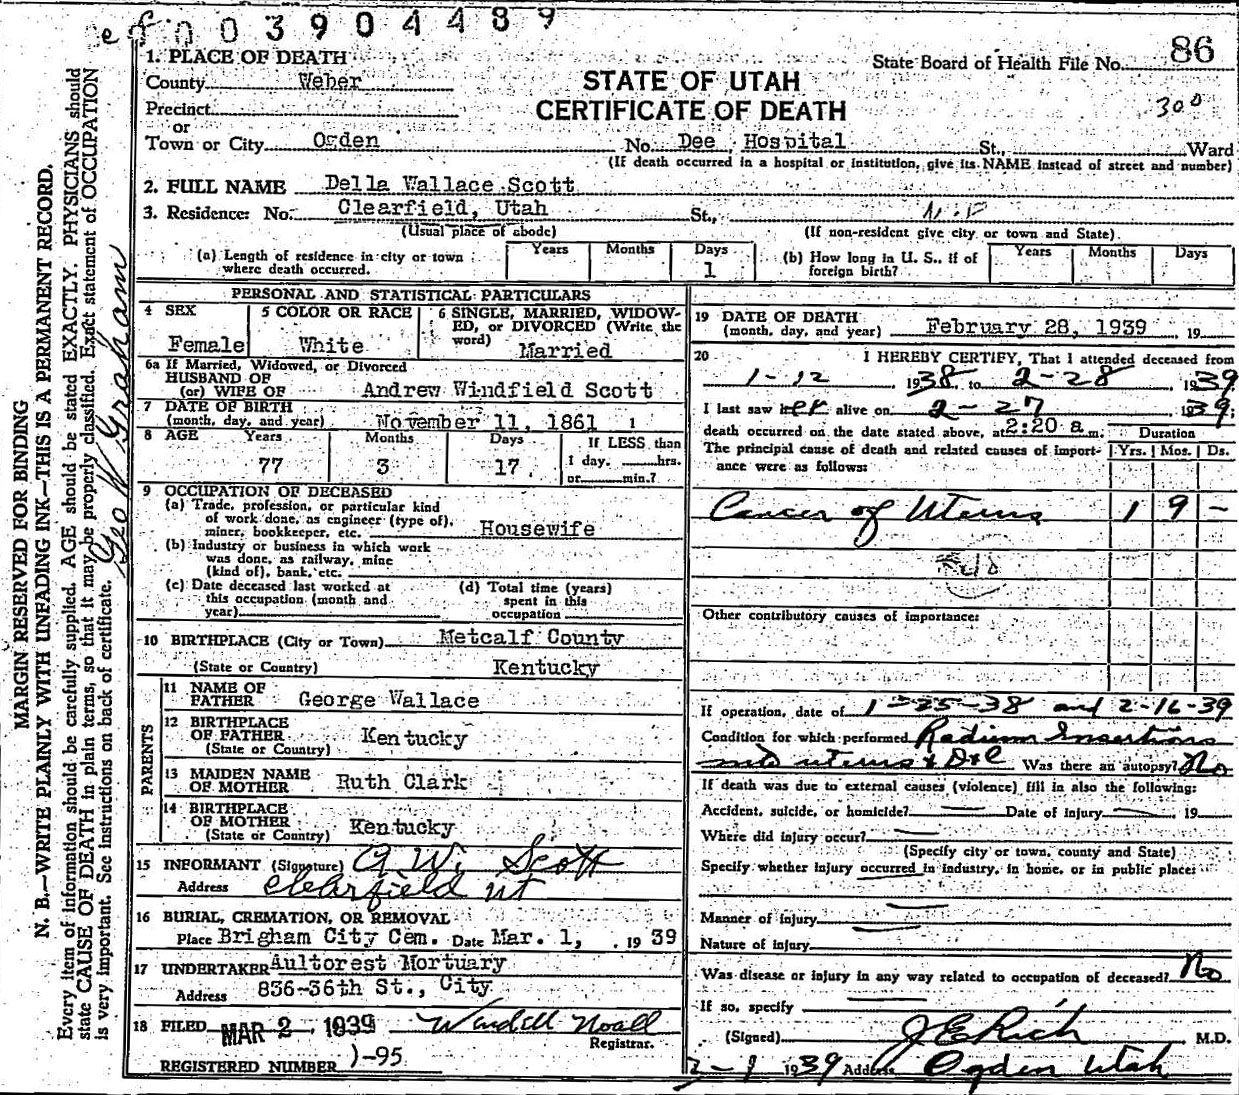 003904489
86
State Board of Health File No.
STATE OF UTAH
CERTIFICATE OF DEATH
300
1. PLACE OF DEATH
County Weber
Precinct
or
Town or City Ogden No. Dee Hospital St., Ward
(If death occurred in a hospital or institution, give its NAME instead of street and number)
2. FULL NAME Della Wallace Scott
3. Residence: No. Clearfield, Utah St.,
(Usual place of abode) (If non-resident give city or town and State)
(a) Length of residence in city or town where death occurred. Years Months Days 1
(b) How long in U. S., if of foreign birth? Years Months Days
PERSONAL AND STATISTICAL PARTICULARS
4 SEX Female
5 COLOR OR RACE White
6 SINGLE, MARRIED, WIDOWED, or DIVORCED (Write the word) Married
6a If Married, Widowed, or Divorced
HUSBAND OF
(or) WIFE OF Andrew Windfield Scott
7 DATE OF BIRTH
(month, day, and year) November 11, 1861
8 AGE Years 77 Months 3 Days 17 If LESS than 1 day, hrs. or min.?
9 OCCUPATION OF DECEASED
(a) Trade, profession, or particular kind of work done, as engineer (type of), miner, bookkeeper, etc. Housewife
(b) Industry or business in which work was done, as railway, mine (kind of), bank, etc.
(c) Date deceased last worked at this occupation (month and year)
(d) Total time (years) spent in this occupation
10 BIRTHPLACE (City or Town) Metcalf County
(State or Country) Kentucky
PARENTS
11 NAME OF FATHER George Wallace
12 BIRTHPLACE OF FATHER (State or Country) Kentucky
13 MAIDEN NAME OF MOTHER Ruth Clark
14 BIRTHPLACE OF MOTHER (State or Country) Kentucky
15 INFORMANT (Signature) A. W. Scott
Address Clearfield Ut
16 BURIAL, CREMATION, OR REMOVAL
Place Brigham City Cem. Date Mar. 1, 1939
17 UNDERTAKER Aultorest Mortuary
Address 836-36th St., City
18 FILED MAR 2 1939 Wendell Noall
Registrar.
REGISTERED NUMBER )-95
19 DATE OF DEATH
(month, day, and year) February 28, 1939 19
20 I HEREBY CERTIFY, That I attended deceased from
1-12 1938, to 2-28, 1939
I last saw her alive on 2-27, 1939;
death occurred on the date stated above, at 2:20 a m.
Duration
The principal cause of death and related causes of importance were as follows: Yrs. Mos. Ds.
Cancer of Uterus 1 9 -
Other contributory causes of importance:
If operation, date of 1-25-38 and 2-16-39
Condition for which performed Radium Insertions
into uterus & D&C Was there an autopsy? No
If death was due to external causes (violence) fill in also the following:
Accident, suicide, or homicide? Date of injury 19
Where did injury occur?
(Specify city or town, county and State)
Specify whether injury occurred in industry, in home, or in public place:
Manner of injury
Nature of injury
Was disease or injury in any way related to occupation of deceased? No
If so, specify
(Signed) J E Rich M.D.
3-1 1939 Address Ogden Utah
MARGIN RESERVED FOR BINDING
N. B.—WRITE PLAINLY WITH UNFADING INK—THIS IS A PERMANENT RECORD.
Every item of information should be carefully supplied. AGE should be stated EXACTLY. PHYSICIANS should
state CAUSE OF DEATH in plain terms, so that it may be properly classified. Exact statement of OCCUPATION
is very important. See instructions on back of certificate.
Geo W Graham